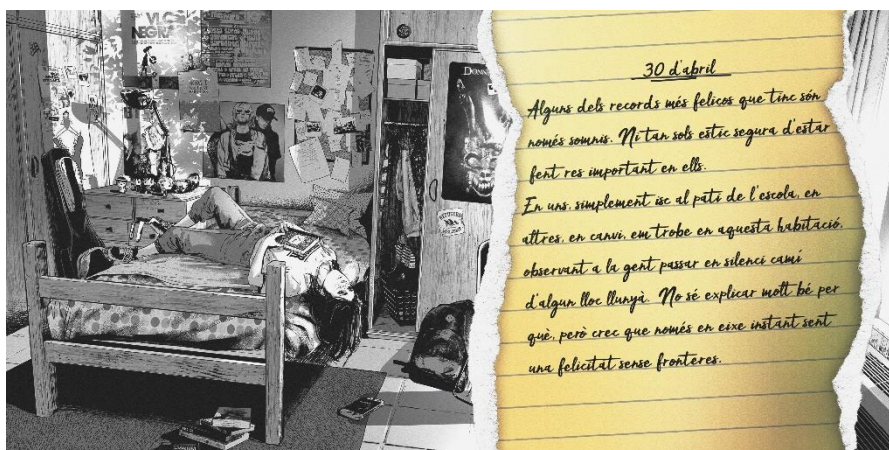 VLC
NEGRA
30 d'abril
Alguns dels records més feliços que tinc són
només somnis. Ni tan sols estic segura d'estar
fent res important en ells.
En uns, simplement isc al pati de l'escola, en
altres, en canvi, em trobe en aquesta habitació,
observant a la gent passar en silenci camí
d'algun lloc llunyà. No sé explicar molt bé per
què, però crec que només en eixe instant sent
una felicitat sense fronteres.